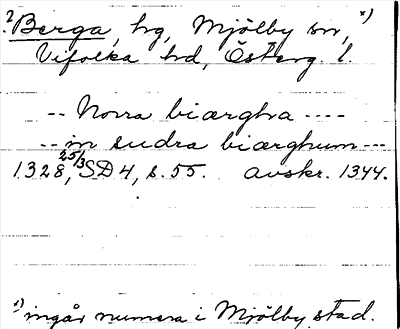 2 Berga, hg, Mjölby sn, x)
Vifolka hd, Österg. l.
-- Norra biærghra ----
-- in sudra biærghum ---
1328, 25/3 SD 4, s. 55. avskr. 1344.
x) ingår numera i Mjölby stad.